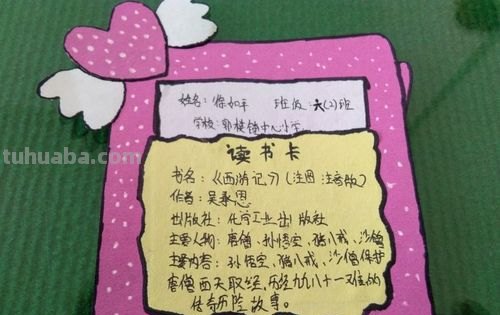 姓名：徐如平 班级：六(2)班
学校：郭棋镇中心小学
读书卡
书名：《西游记》(注图 注音版)
作者：吴承恩
出版社：化学工业出版社
主要人物：唐僧、孙悟空、猪八戒、沙僧
主要内容：孙悟空、猪八戒、沙僧保护
唐僧西天取经，历经九九八十一难的
传奇历险故事。
tuhuaba.com